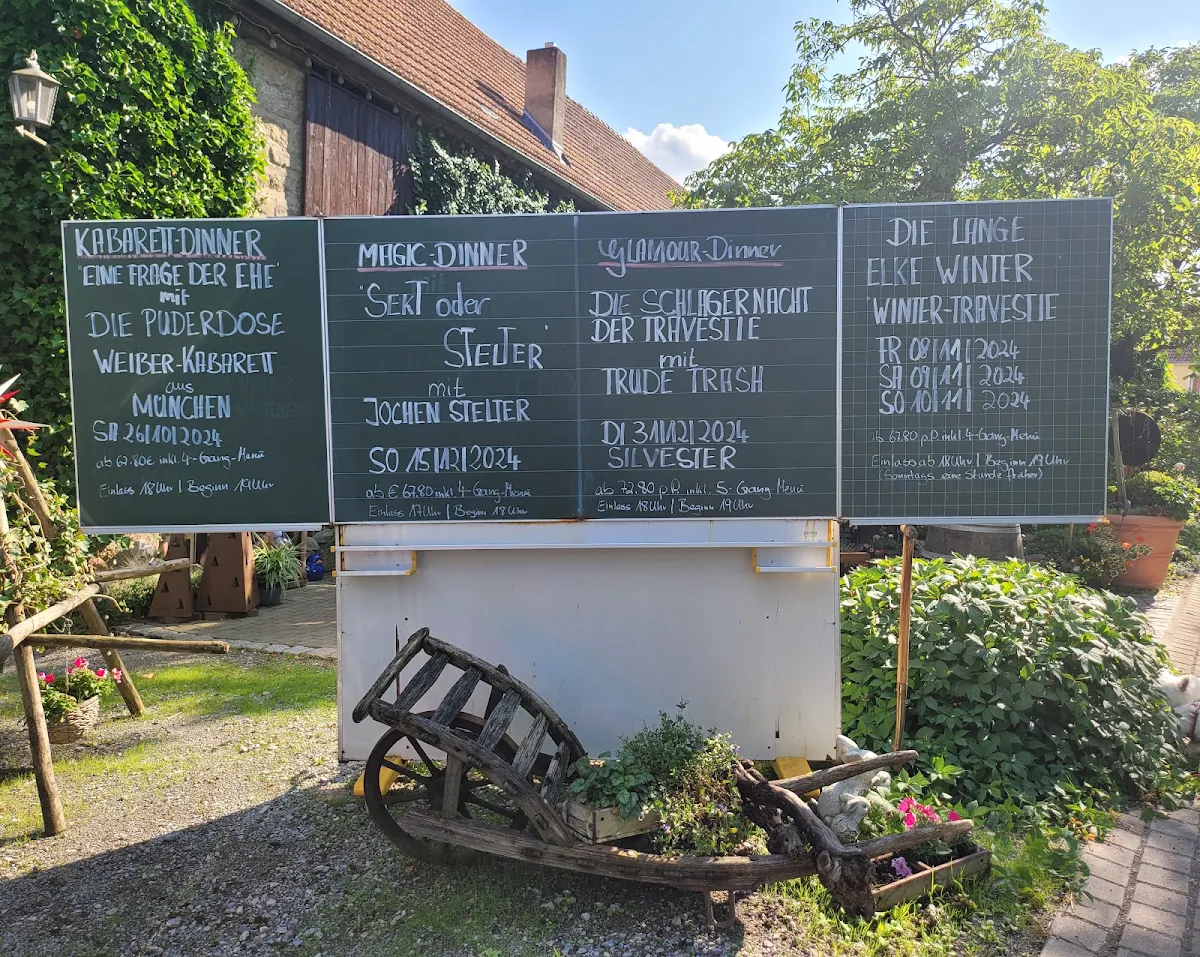 KABARETT-DINNER
"EINE FRAGE DER EHE"
mit
DIE PUDERDOSE
WEIBER-KABARETT
aus
MÜNCHEN
SA 26|10|2024
ab 67.80€ inkl. 4-Gang-Menü
Einlass 18Uhr | Beginn 19Uhr
MAGIC-DINNER
"SEKT oder
SELTER"
mit
JOCHEN STELTER
SO 15|12|2024
ab € 67.80 inkl 4-Gang-Menü
Einlass 17Uhr | Beginn 18Uhr
GLAMOUR-Dinner
DIE SCHLAGERNACHT
DER TRAVESTIE
mit
TRUDE TRASH
DI 31|12|2024
SILVESTER
ab 72.80 p.P. inkl. 5-Gang Menü
Einlass 18Uhr | Beginn 19Uhr
DIE LANGE
ELKE WINTER
WINTER-TRAVESTIE
FR 08|11|2024
SA 09|11|2024
SO 10|11|2024
ab 67.80 p.P. inkl 4-Gang-Menü
Einlass ab 18Uhr | Beginn 19Uhr
(Sonntags eine Stunde früher)